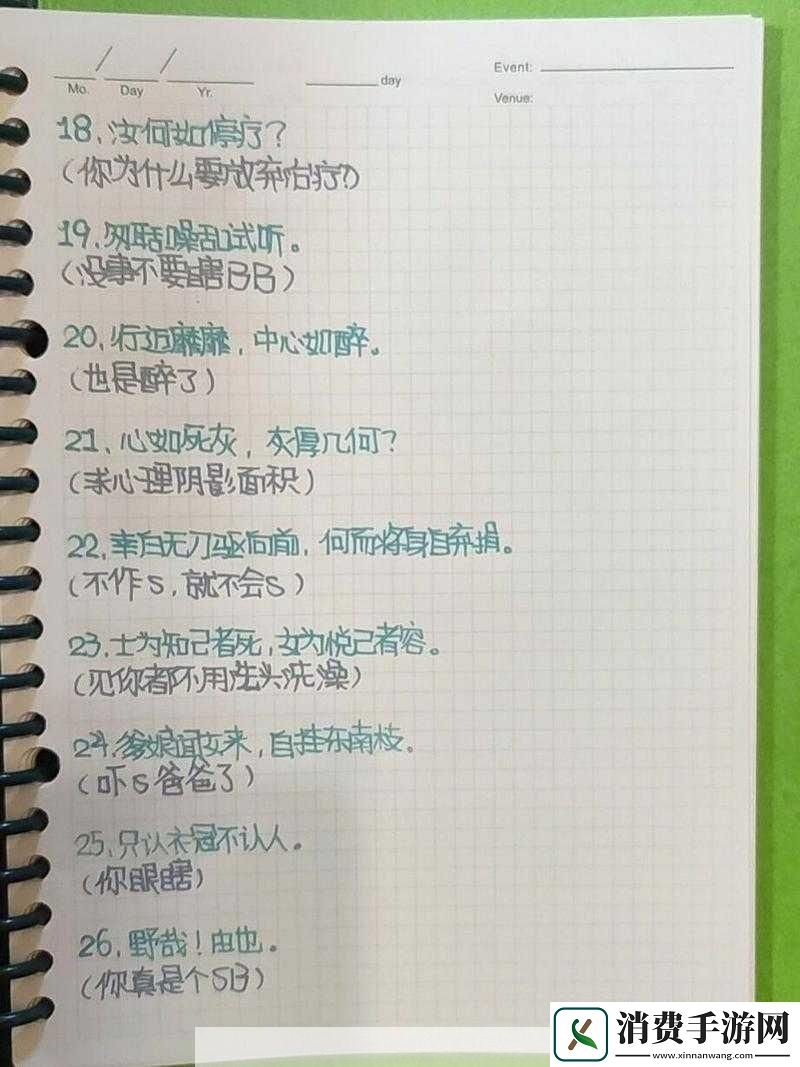 Mo. / Day / Yr. day Event:
Venue:
18、汝何如停疗？
(你为什么要放弃治疗?)
19、勿聒噪乱试听。
(没事不要瞎BB)
20、行迈靡靡，中心如醉。
(也是醉了)
21、心如死灰，灰厚几何？
(求心理阴影面积)
22、幸自无刀驱向前，何而将身自弃捐。
(不作S，就不会S)
23、士为知己者死，女为悦己者容。
(见你都不用洗头洗澡)
24、爹娘闻女来，自挂东南枝。
(吓S爸爸了)
25、只认衣冠不认人。
(你眼瞎)
26、野哉！由也。
(你真是个SB)
消费手游网
www.xinnanwang.com